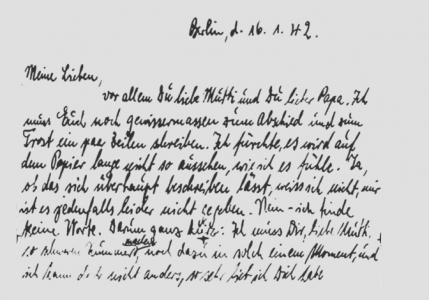 Berlin, d. 16. 1. 42.
Meine Lieben,
vor allem Du liebe Mutti und Du lieber Papa. Ich
muss Euch noch gewissermassen zum Abschied und zum
Trost ein paar Zeilen schreiben. Ich fürchte, es wird auf
dem Papier lange nicht so aussehen, wie ich es fühle. Ja,
ob das sich überhaupt beschreiben lässt, weiss ich nicht, mir
ist es jedenfalls leider nicht gegeben. Nein - ich finde
keine Worte. Darum ganz kurz: Ich muss Dir, liebe Mutti,
so schweren Kummer machen, noch dazu in solch einem Moment, und
ich kann doch nicht anders, so sehr lieb ich Dich habe